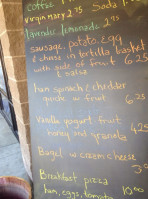 coffee
virgin mary 2.95 Soda
lavender lemonade 2.95
sausage, potato, egg
& cheese in tortilla basket
with side of fruit 6.25
& salsa
ham spinach & cheddar
quiche w/ fruit 6.25
Vanilla yogurt fruit
honey and granola 4.25
Bagel w/ cream cheese
3.
Breakfast pizza
ham, eggs, tomato 10.00